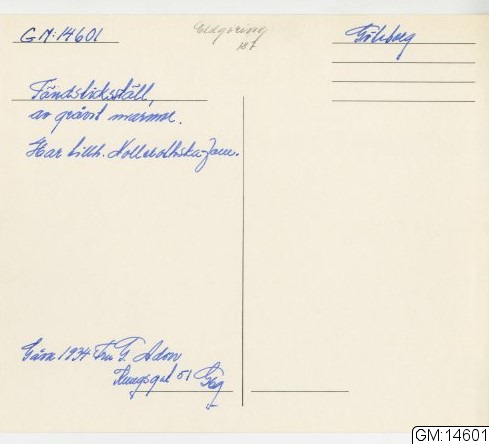 GM:14601
Eldgöring
187
Göteborg
Tändsticksställ,
av gråvit marmor.
Har tillh. Nollerothska fam.
Gåva 1934 Fru G. Adon
Kungsgat 51 Gbg
GM:14601